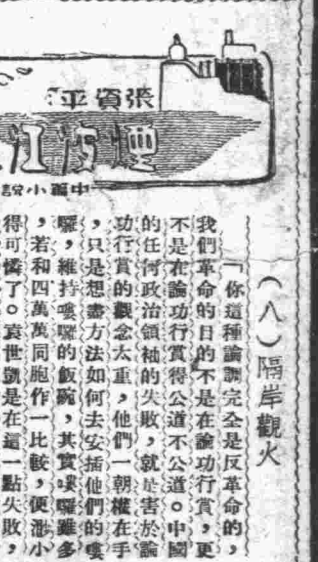 張資平
煙波江
中篇小說
(八)隔岸觀火
「你這種論調完全是反革命的,
我們革命的目的不是在論功行賞,更
不是在論功行賞得公道不公道。中國
的任何政治領袖的失敗,就是害於論
功行賞的觀念太重,他們一朝權在手
,只是想盡方法如何去安插他們的嘍
囉,維持嘍囉的飯碗,其實嘍囉雖多
,若和四萬萬同胞作一比較,便渺小
得可憐了。袁世凱是在這一點失敗,